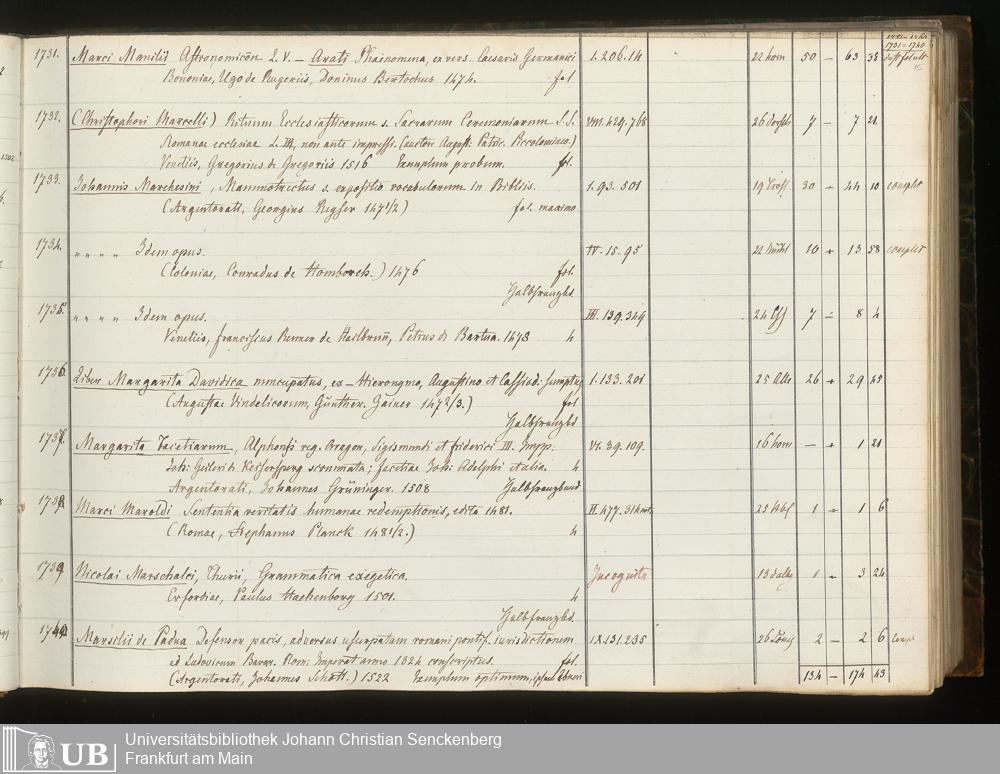 1731–1740
1731. Marci Manilii Astronomicōn L V. — Arati Phainomena, ex vers. Caesaris Germanici 1. 206. 14 22 hom 50 – 63 38
Bononiae, Ugo de Rugeriis, Doninus Bertochus 1474. fol
1732. (Christophori Marcelli) Rituum Ecclesiasticorum s. Sacrarum Ceremoniarum S.S. VIII. 429. 768 26 7 – 7 21
Romanae ecclesiae L. III, non ante impressi. (auctore August: Patric. Piccolomineo.)
Venetiis, Gregorius de Gregoriis 1516 Exemplum probum. fol.
1733. Johannis Marchesini, Mammotrectus s. expositio vocabulorum in Bibliis. 1. 93. 501 19 30 – 44 10 complet
(Argentorati, Georgius Reyser 1471/2) fol. maximo
1734. " " " " Idem opus. IV. 15. 95 22 10 + 13 58 complet
(Coloniae, Conradus de Homborch.) 1476 fol.
Halbfranzbd.
1735. " " " " Idem opus. III. 139. 349 24 7 – 8 4
Venetiis, Franciscus Renner de Hailbrun, Petrus de Bartua. 1478 4
1736. Liber Margarita Davidica nuncupatus, ex – Hieronymo, Augustino et Cassiod: sumptus 1. 133. 201 25 26 + 29 45
(Augustae Vindelicorum, Günther. Zainer 1472/3.) fol
Halbfranzbd
1737. Margarita Facetiarum, Alphonsi reg. Aragon, Sigismundi et Friderici III. Impp. VI. 39. 109. 16 hom — + 1 21
Joh: Geilori de Keisersperg scommata; facetiae Joh: Adelphi et alia. 4
Argentorati, Johannes Grüninger. 1508 Halbfranzband
1738. Marci Maroldi Sententia veritatis humanae redemptionis, edita 1481. II. 477. 31 25 1 + 1 6
(Romae, Stephanus Planck 1481/2.) 4
1739 Nicolai Marschalci, Thurii, Grammatica exegetica. Incognito 13 dalby 1 – 3 24
Erfordiae, Paulus Hachenborg 1501. 4
Halbfranzbd.
1740 Marsilii de Padua Defensor pacis, adversus usurpatam romani pontif. iurisdictionem IX. 131. 235 26 König 2 – 2 6
ad Ludovicum Bavar. Rom: Imperat anno 1324 conscriptus. fol.
(Argentorati, Johannes Schott.) 1522 Exemplum optimum,
134 – 174 43
UB Universitätsbibliothek Johann Christian Senckenberg
Frankfurt am Main